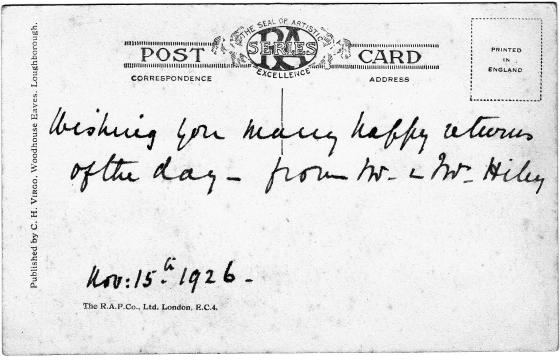 THE SEAL OF ARTISTIC
POST RA SERIES CARD
EXCELLENCE
CORRESPONDENCE ADDRESS
PRINTED
IN
ENGLAND
Published by C. H. Virgo, Woodhouse Eaves, Loughborough.
Wishing you many happy returns
of the day – from Mr. & Mrs. Hiley
Nov: 15th 1926 –
The R.A.P. Co., Ltd. London, E.C.4.